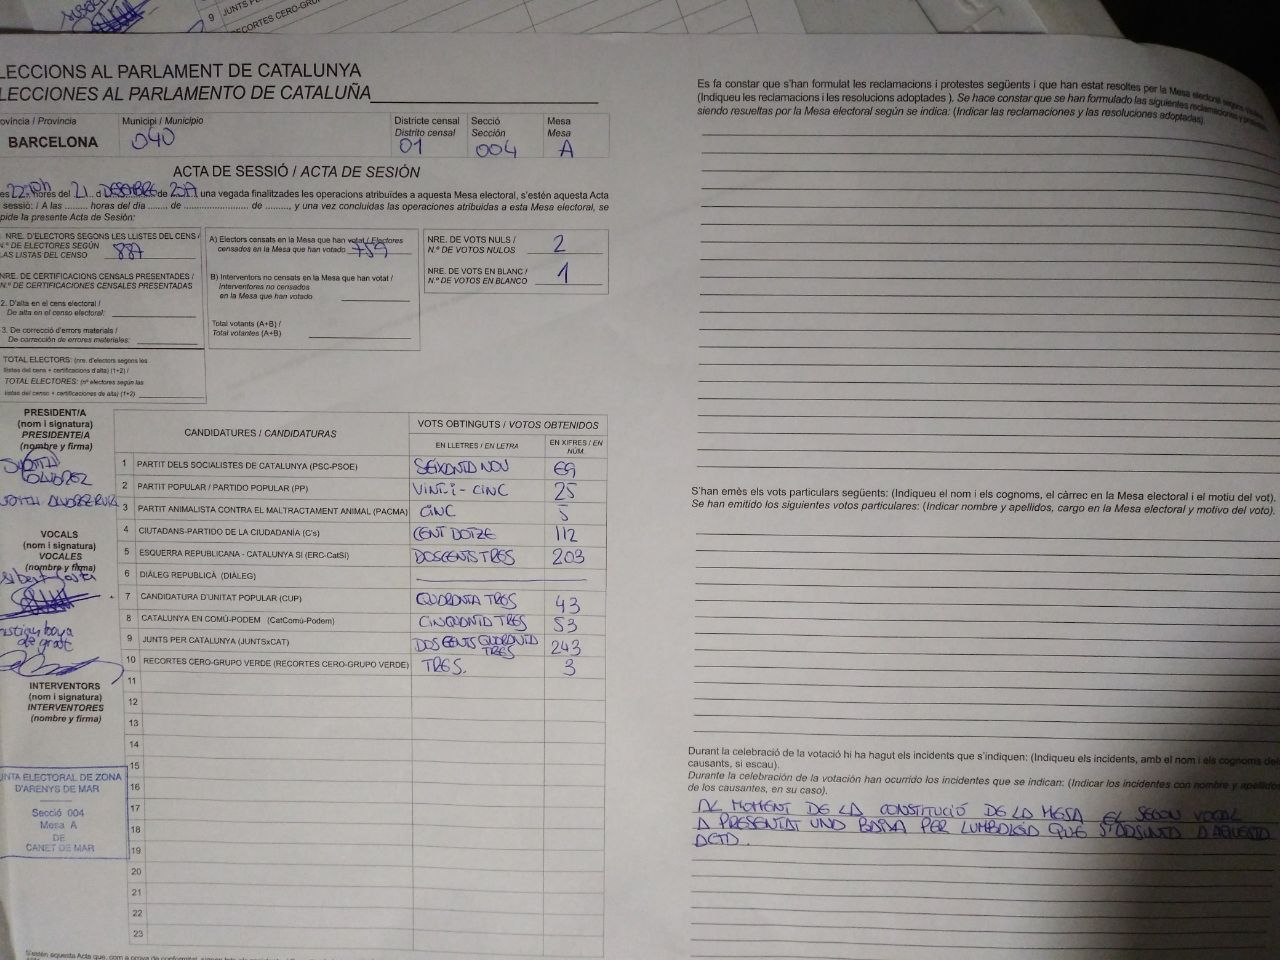 9 JUNTS
RECORTES CERO-GRU
LECCIONS AL PARLAMENT DE CATALUNYA
LECCIONES AL PARLAMENTO DE CATALUÑA
ovíncia / Provincia
BARCELONA
Municipi / Municipio
040
Districte censal
Distrito censal
01
Secció
Sección
004
Mesa
Mesa
A
ACTA DE SESSIÓ / ACTA DE SESIÓN
es 22:10h hores del 21 d DESEMBRE de una vegada finalitzades les operacions atribuïdes a aquesta Mesa electoral, s'estén aquesta Acta
sessió: / A las ......... horas del día ....... de ......................... de ........, y una vez concluidas las operaciones atribuidas a esta Mesa electoral, se
pide la presente Acta de Sesión:
NRE. D'ELECTORS SEGONS LES LLISTES DEL CENS /
N.º DE ELECTORES SEGÚN
LAS LISTAS DEL CENSO 887
NRE. DE CERTIFICACIONS CENSALS PRESENTADES /
N.º DE CERTIFICACIONES CENSALES PRESENTADAS
2. D'alta en el cens electoral /
De alta en el censo electoral:
3. De correcció d'errors materials /
De corrección de errores materiales:
TOTAL ELECTORS: (nre. d'electors segons les
llistes del cens + certificacions d'alta) (1+2) /
TOTAL ELECTORES: (nº electores según las
listas del censo + certificaciones de alta) (1+2)
A) Electors censats en la Mesa que han votat / Electores
censados en la Mesa que han votado 759
B) Interventors no censats en la Mesa que han votat /
Interventores no censados
en la Mesa que han votado
Total votants (A+B) /
Total votantes (A+B)
NRE. DE VOTS NULS /
N.º DE VOTOS NULOS 2
NRE. DE VOTS EN BLANC /
N.º DE VOTOS EN BLANCO 1
PRESIDENT/A
(nom i signatura)
PRESIDENTE/A
(nombre y firma)
VOCALS
(nom i signatura)
VOCALES
(nombre y firma)
INTERVENTORS
(nom i signatura)
INTERVENTORES
(nombre y firma)
CANDIDATURES / CANDIDATURAS
VOTS OBTINGUTS / VOTOS OBTENIDOS
EN LLETRES / EN LETRA
EN XIFRES / EN NÚM.
1 PARTIT DELS SOCIALISTES DE CATALUNYA (PSC-PSOE) SEIXANTA NOU 69
2 PARTIT POPULAR / PARTIDO POPULAR (PP) VINT-i-CINC 25
3 PARTIT ANIMALISTA CONTRA EL MALTRACTAMENT ANIMAL (PACMA) CINC 5
4 CIUTADANS-PARTIDO DE LA CIUDADANÍA (C's) CENT DOTZE 112
5 ESQUERRA REPUBLICANA - CATALUNYA SÍ (ERC-CatSí) DOSCENTS TRES 203
6 DIÀLEG REPUBLICÀ (DIÀLEG)
7 CANDIDATURA D'UNITAT POPULAR (CUP) QUARANTA TRES 43
8 CATALUNYA EN COMÚ-PODEM (CatComú-Podem) CINQUANTA TRES 53
9 JUNTS PER CATALUNYA (JUNTSxCAT) DOSCENTS QUARANTA TRES 243
10 RECORTES CERO-GRUPO VERDE (RECORTES CERO-GRUPO VERDE) TRES. 3
11
12
13
14
15
16
17
18
19
20
21
22
23
NTA ELECTORAL DE ZONA
D'ARENYS DE MAR
Secció 004
Mesa A
DE
CANET DE MAR
S'estén aquesta Acta que, com a prova de conformitat,
Es fa constar que s'han formulat les reclamacions i protestes següents i que han estat resoltes per la Mesa electoral segons
(Indiqueu les reclamacions i les resolucions adoptades ). Se hace constar que se han formulado las siguientes reclamaciones y
siendo resueltas por la Mesa electoral según se indica: (Indicar las reclamaciones y las resoluciones adoptadas).
S'han emès els vots particulars següents: (Indiqueu el nom i els cognoms, el càrrec en la Mesa electoral i el motiu del vot).
Se han emitido los siguientes votos particulares: (Indicar nombre y apellidos, cargo en la Mesa electoral y motivo del voto).
Durant la celebració de la votació hi ha hagut els incidents que s'indiquen: (Indiqueu els incidents, amb el nom i els cognoms dels
causants, si escau).
Durante la celebración de la votación han ocurrido los incidentes que se indican: (Indicar los incidentes con nombre y apellidos
de los causantes, en su caso).
AL MOMENT DE LA CONSTITUCIÓ DE LA MESA EL SEGON VOCAL
A PRESENTAT UNA BAIXA PER LUMBALGIA QUE S'ADJUNTA A AQUESTA
ACTA.